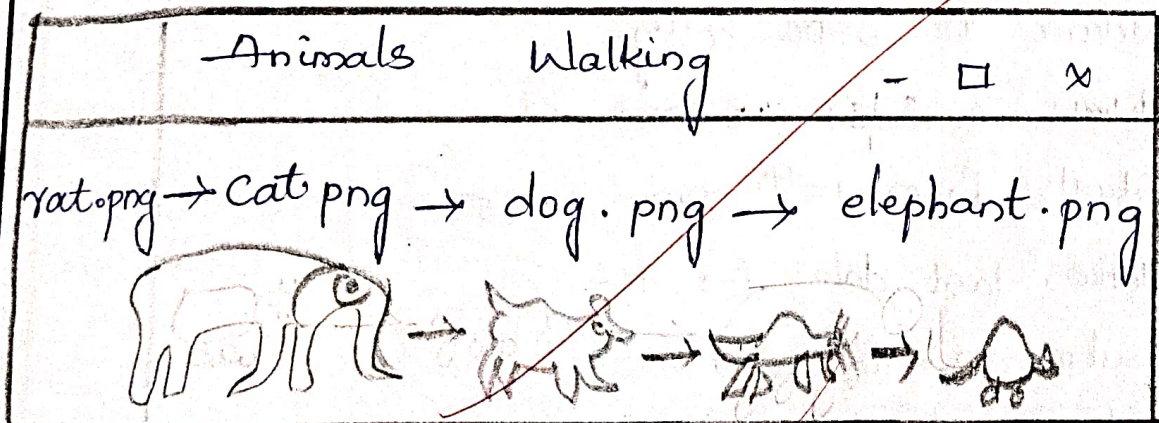 Animals Walking ... - □ x
rat.png → cat png → dog. png → elephant.png